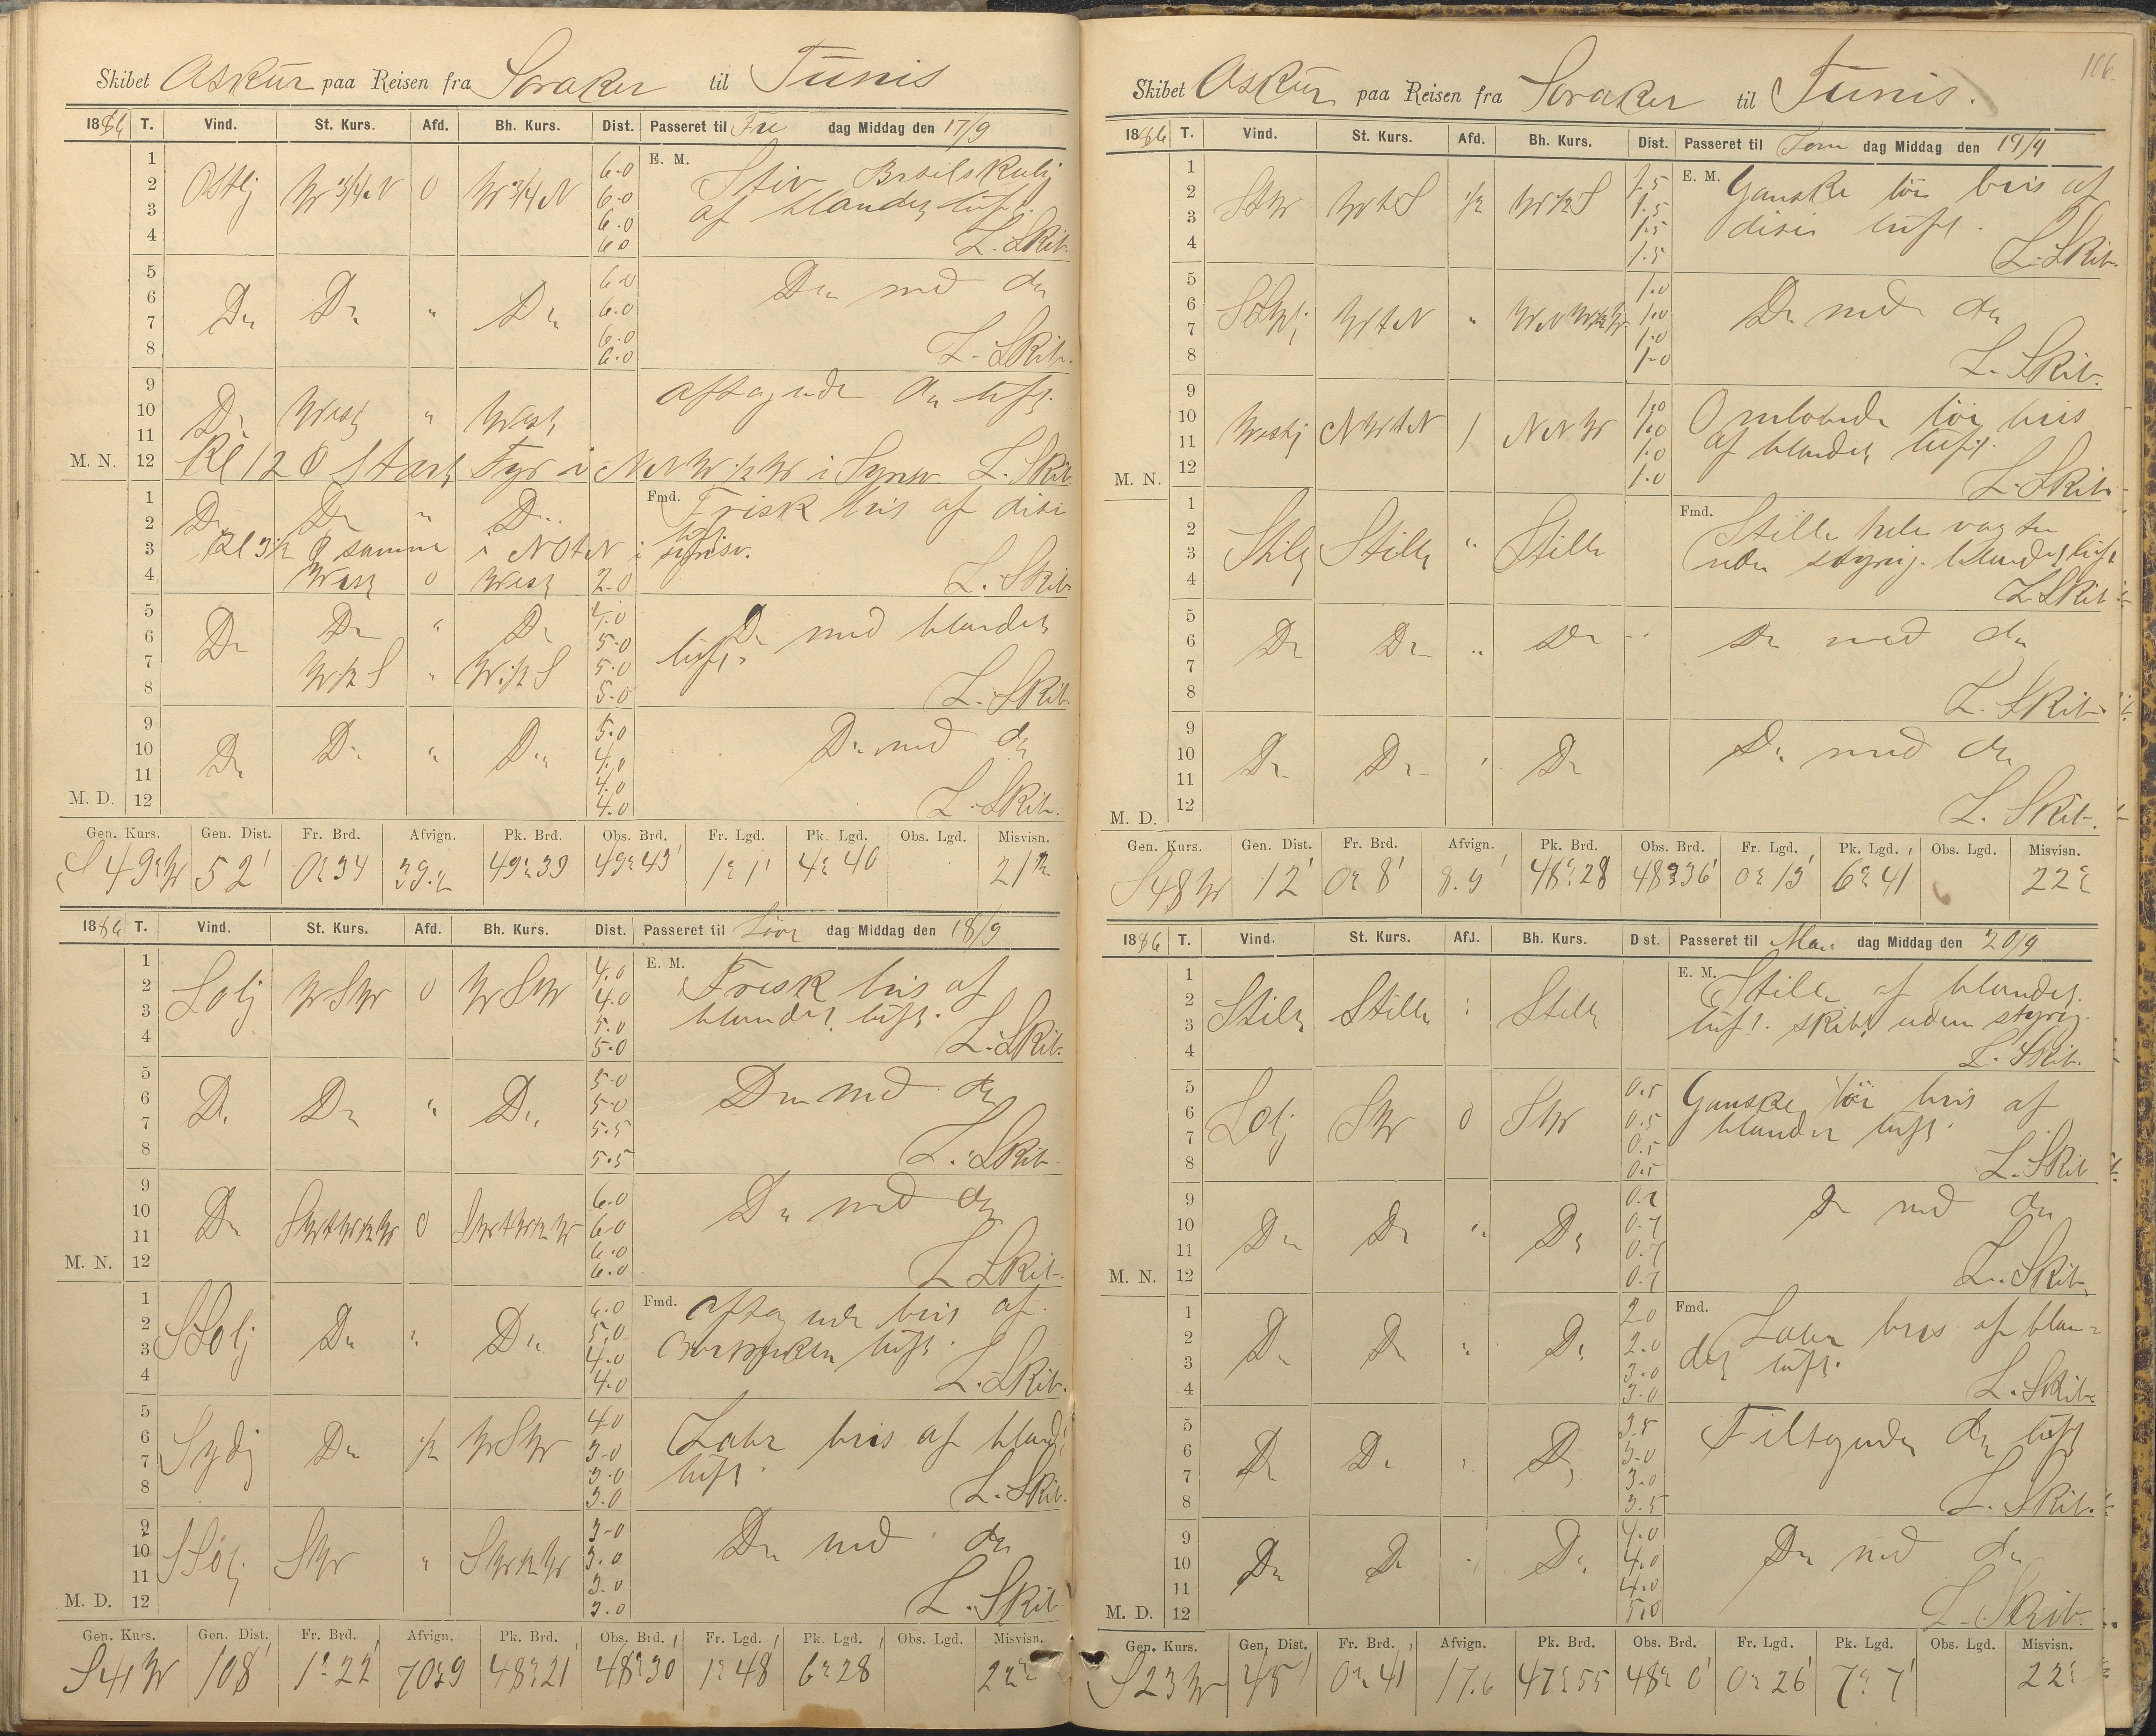 Skibet Askur paa Reisen fra Soraker til Tunis
1886 T. Vind. St. Kurs. Afd. Bh. Kurs. Dist. Passeret til Fre dag Middag den 17/9
1 6.0 E. M. Stiv
2 Ostlj W 3/4 N 0 W 3/4 N 6.0 af blandet luft.
3 6.0
4 6.0 L. Skib.
5 6.0 Do med do
6 Do Do " Do 6.0
7 6.0
8 6.0 L. Skib.
9 aftagende do luft.
10 Do West " West
11
M. N. 12 Kl 12 0 Start Fyr i NNW 1/2 W i Synsv. L. Skib.
1 Do Do " Do Fmd. Frisk bris af disi
2 luft
3 Kl 3 1/2 samme i NOtN i synsv.
4 West 0 West 2.0 L. Skib.
5 Do " Do Do med blandet
6 Do 5.0 luft.
7 W 1/2 S " W 1/2 S 5.0
8 5.0 L. Skib.
9 5.0 Do med do
10 Do Do " Do 4.0
11 4.0
M. D. 12 4.0 L. Skib.
Gen. Kurs. Gen. Dist. Fr. Brd. Afvign. Pk. Brd. Obs. Brd. Fr. Lgd. Pk. Lgd. Obs. Lgd. Misvisn.
S 49° W 52' 0° 34 39.2 49° 39 49° 43' 1° 1' 4° 40 21°
1886 T. Vind. St. Kurs. Afd. Bh. Kurs. Dist. Passeret til Löver dag Middag den 18/9
1 4.0 E. M. Frisk bris af
2 Solj WSW 0 WSW 4.0 blandet luft.
3 5.0
4 5.0 L. Skib.
5 5.0 Do med do
6 Do Do " Do 5.0
7 5.5
8 5.5 L. Skib.
9 6.0 Do med do
10 Do SWtW 1/2 W 0 SWtW 1/2 W 6.0
11 6.0
M. N. 12 6.0 L Skib.
1 6.0 Fmd. aftagende bris af
2 SSolj Do " Do 5.0 luft.
3 4.0
4 4.0 L. Skib.
5 4.0 Labr bris af bland.
6 Sydj Do 1/2 WSW 3.0 luft.
7 3.0
8 3.0 L. Skib.
9 3.0 Do med do
10 SSolj SW " SW 1/2 W 3.0
11 3.0
M. D. 12 3.0 L. Skib
Gen. Kurs. Gen. Dist. Fr. Brd. Afvign. Pk. Brd. Obs. Brd. Fr. Lgd. Pk. Lgd. Obs. Lgd. Misvisn.
S 41 W 108' 1° 22' 70.9 48° 21 48° 30' 1° 48' 6° 28' 22°
106.
Skibet Askur paa Reisen fra Soraker til Tunis.
1886 T. Vind. St. Kurs. Afd. Bh. Kurs. Dist. Passeret til Sön dag Middag den 19/9
1 1.5 E. M. Ganske lör bris af
2 StW WtS 1/2 W 1/2 S 1.5 disi luft.
3 1.5
4 1.5 L. Skib.
5 1.0 Do med do
6 WtN " 1.0
7 1.0
8 1.0 L. Skib.
9 1.0 Omlobende lör bris
10 Westj NWtN 1 NNW 1.0 af blandet luft.
11 1.0
M. N. 12 1.0 L. Skib.
1 Fmd. Stille hele vagten
2 Stille Stille " Stille uden styring. blandet luft
3
4 L. Skib
5 Do med do
6 Do Do " Do
7
8 L. Skib.
9 Do med do
10 Do Do " Do
11
M. D. 12 L. Skib.
Gen. Kurs. Gen. Dist. Fr. Brd. Afvign. Pk. Brd. Obs. Brd. Fr. Lgd. Pk. Lgd. Obs. Lgd. Misvisn.
S 48 W 12' 0° 8' 8.9' 48° 28 48° 36' 0° 13' 6° 41' 22°
1886 T. Vind. St. Kurs. Afd. Bh. Kurs. Dist. Passeret til Man dag Middag den 20/9
1 E. M. Stille af blandet
2 Stille Stille " Stille luft. skibet uden styring.
3
4 L. Skib.
5 0.5 Ganske lör bris af
6 Solj SW 0 SW 0.5 blandet luft.
7 0.5
8 0.5 L. Skib
9 0.7 Do med do
10 Do Do " Do 0.7
11 0.7
M. N. 12 0.7 L. Skib.
1 2.0 Fmd. Labr bris af blan=
2 Do Do " Do 2.0 det luft.
3 3.0
4 3.0 L. Skib.
5 3.5 Tiltagende do luft
6 Do Do " Do 3.0
7 3.0
8 3.5 L. Skib.
9 4.0 Do med do
10 Do Do " Do 4.0
11 4.0
M. D. 12 5.0 L. Skib.
Gen. Kurs. Gen. Dist. Fr. Brd. Afvign. Pk. Brd. Obs. Brd. Fr. Lgd. Pk. Lgd. Obs. Lgd. Misvisn.
S 23 W 45' 0° 41 17.6 47° 55 48° 0' 0° 26' 7° 7' 22°